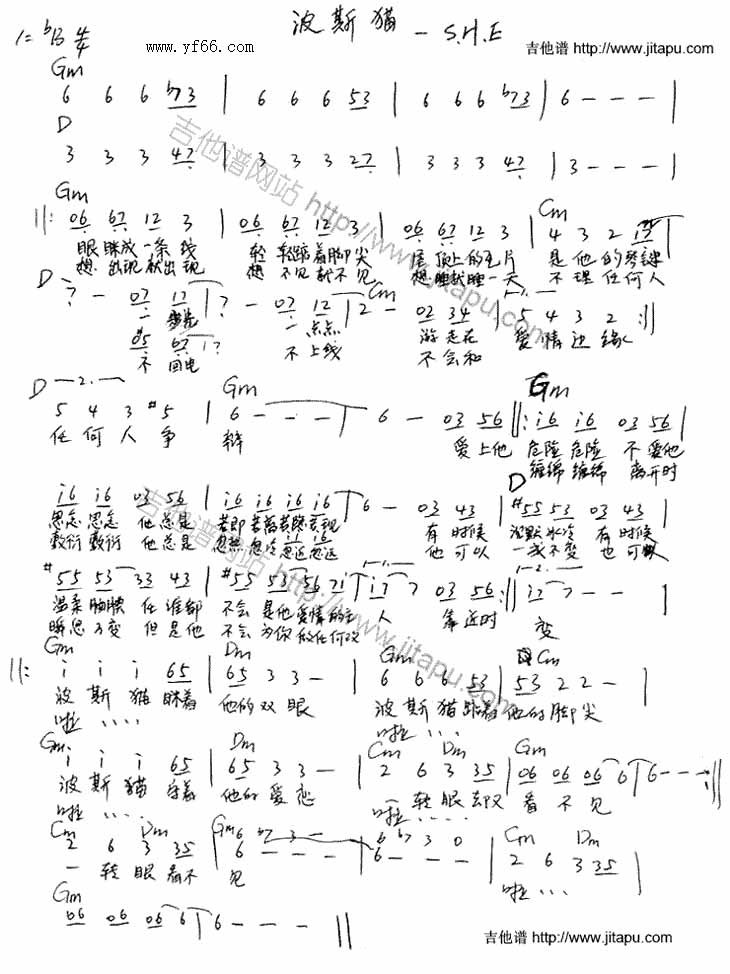 波斯猫 - S.H.E
1=♭B 4/4
www.yf66.com
吉他谱 http://www.jitapu.com
Gm
6 6 6 ♭73 | 6 6 6 53 | 6 6 6 ♭73 | 6 - - - |
D
3 3 3 47 | 3 3 3 27 | 3 3 3 47 | 3 - - - |
吉他谱网站 http://www.jitapu.com
Gm Cm
||: 06 67 12 3 | 06 67 12 3 | 06 67 12 3 | 4 3 2 17
眼眯成一条线 轻轻踮着脚尖 屋顶上的瓦片 是他的琴键
想出现就出现 想不见就不见 想睡就睡一天 不理任何人
D Cm 1.
7 - 07 17 | 7 - 07 12 | 2 - 02 34 | 5 4 3 2 :||
一 一点点 游走在 爱情边缘
05 67 17
不回电 不上线 不会和
D 2. Gm Gm
5 4 3 #5 | 6 - - - | 6 - 03 56 ||: i6 i6 03 56 |
任何人争 辩 爱上他 危险危险 不爱他
缠绵缠绵 离开时
D
i6 i6 03 56 | i6 i6 i6 i6 | 6 - 03 43 | #55 53 03 43 |
思念思念 他总是 若即若离若隐若现 有时候 沉默冰冷 有时候
敷衍敷衍 他总是 忽热忽冷忽近忽远 他可以 一成不变 也可以
吉他谱网站 http://www.jitapu.com
1. 2.
#55 53 33 43 | #55 53 56 7i | i7 7 03 56 :|| i7 7 - - |
温柔腼腆 任谁都 不会是他爱情的主 人 靠近时 变
瞬息万变 但是他 不会为你做任何改
Gm Dm Gm Cm
||: i i i 65 | 65 3 3 - | 6 6 6 53 | 53 2 2 - |
波斯猫眯着 他的双眼 波斯猫踮着他的脚尖
啦.... 啦....
Gm Dm Cm Dm Gm
i i i 65 | 65 3 3 - | 2 6 3 35 | 06 06 06 6 | 6 - - - :||
波斯猫守着 他的爱恋 一转眼却又 看不见
啦.... 啦....
Cm Dm Gm Cm Dm
2 6 3 35 | 6 - - - | 6 - - - | 2 6 3 35 |
6 ♭7 3 - 6 ♭7 3 0
一转眼看不 见 啦...
Gm
06 06 06 6 | 6 - - - ||
吉他谱 http://www.jitapu.com